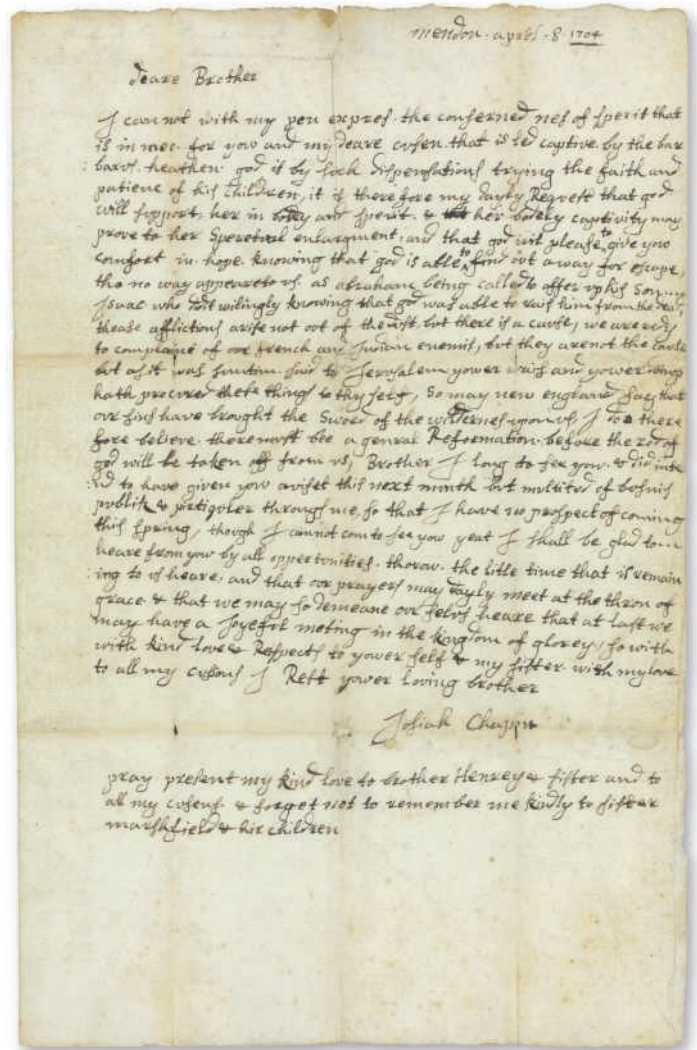 mendon. april -8- 1704
deare Brother
I can not with my pen expres. the conserned nes of sperit that
is in mee. for you and my deare cusen that is led captive by the bar
barus. heathen. god is by such dispensations trying the faith and
patiene of his children, it is therefore my dayly Request that god
will support, her in body and sperit. & her bodely captivity may
prove to her Speretual enlargment, and that god will please to give you
comfort in hope. knowing that god is able to find out a way for escape,
tho no way appeare to us. as abraham being called to offer up his Son
Isaac who did wilingly knowing that god was able to rais him from the dead
thease afflictions arise not out of the dust. but there is a cause, we are redy
to complaine of our french and Indian enemis, but they are not the cause
but as it was sumtim said to Jerusalem yower ways and yower doings
hath procured these things to thy self, so may new england say that
our sins have brought the Sword of the wildernes upon us I doe there
fore believe. there must bee a genral Reformation. before the rod of
god will be taken off from us, Brother I long to see you. & did inte
nd to have given you a viset this next month but multitud of besnis
publik & pertiquler through me, so that I have no prospect of coming
this spring, though I cannot com to see you yeat I shall be glad to
heare from you by all oppertunities. thorow. the litle time that is remain
ing to us heare. and that our prayers may dayly meet at the thron of
grace. & that we may so demeane our selvs heare that at last we
may have a Joyefil meting in the kingdom of glorey, so with
with kind love & Respects to yower self & my sister. with my love
to all my cusens I Rest yower loving brother
Josiah Chapin
pray present my kind love to brother Henrey & sister and to
all my cusens & forget not to remember me kindly to sister
marshfield & hir children